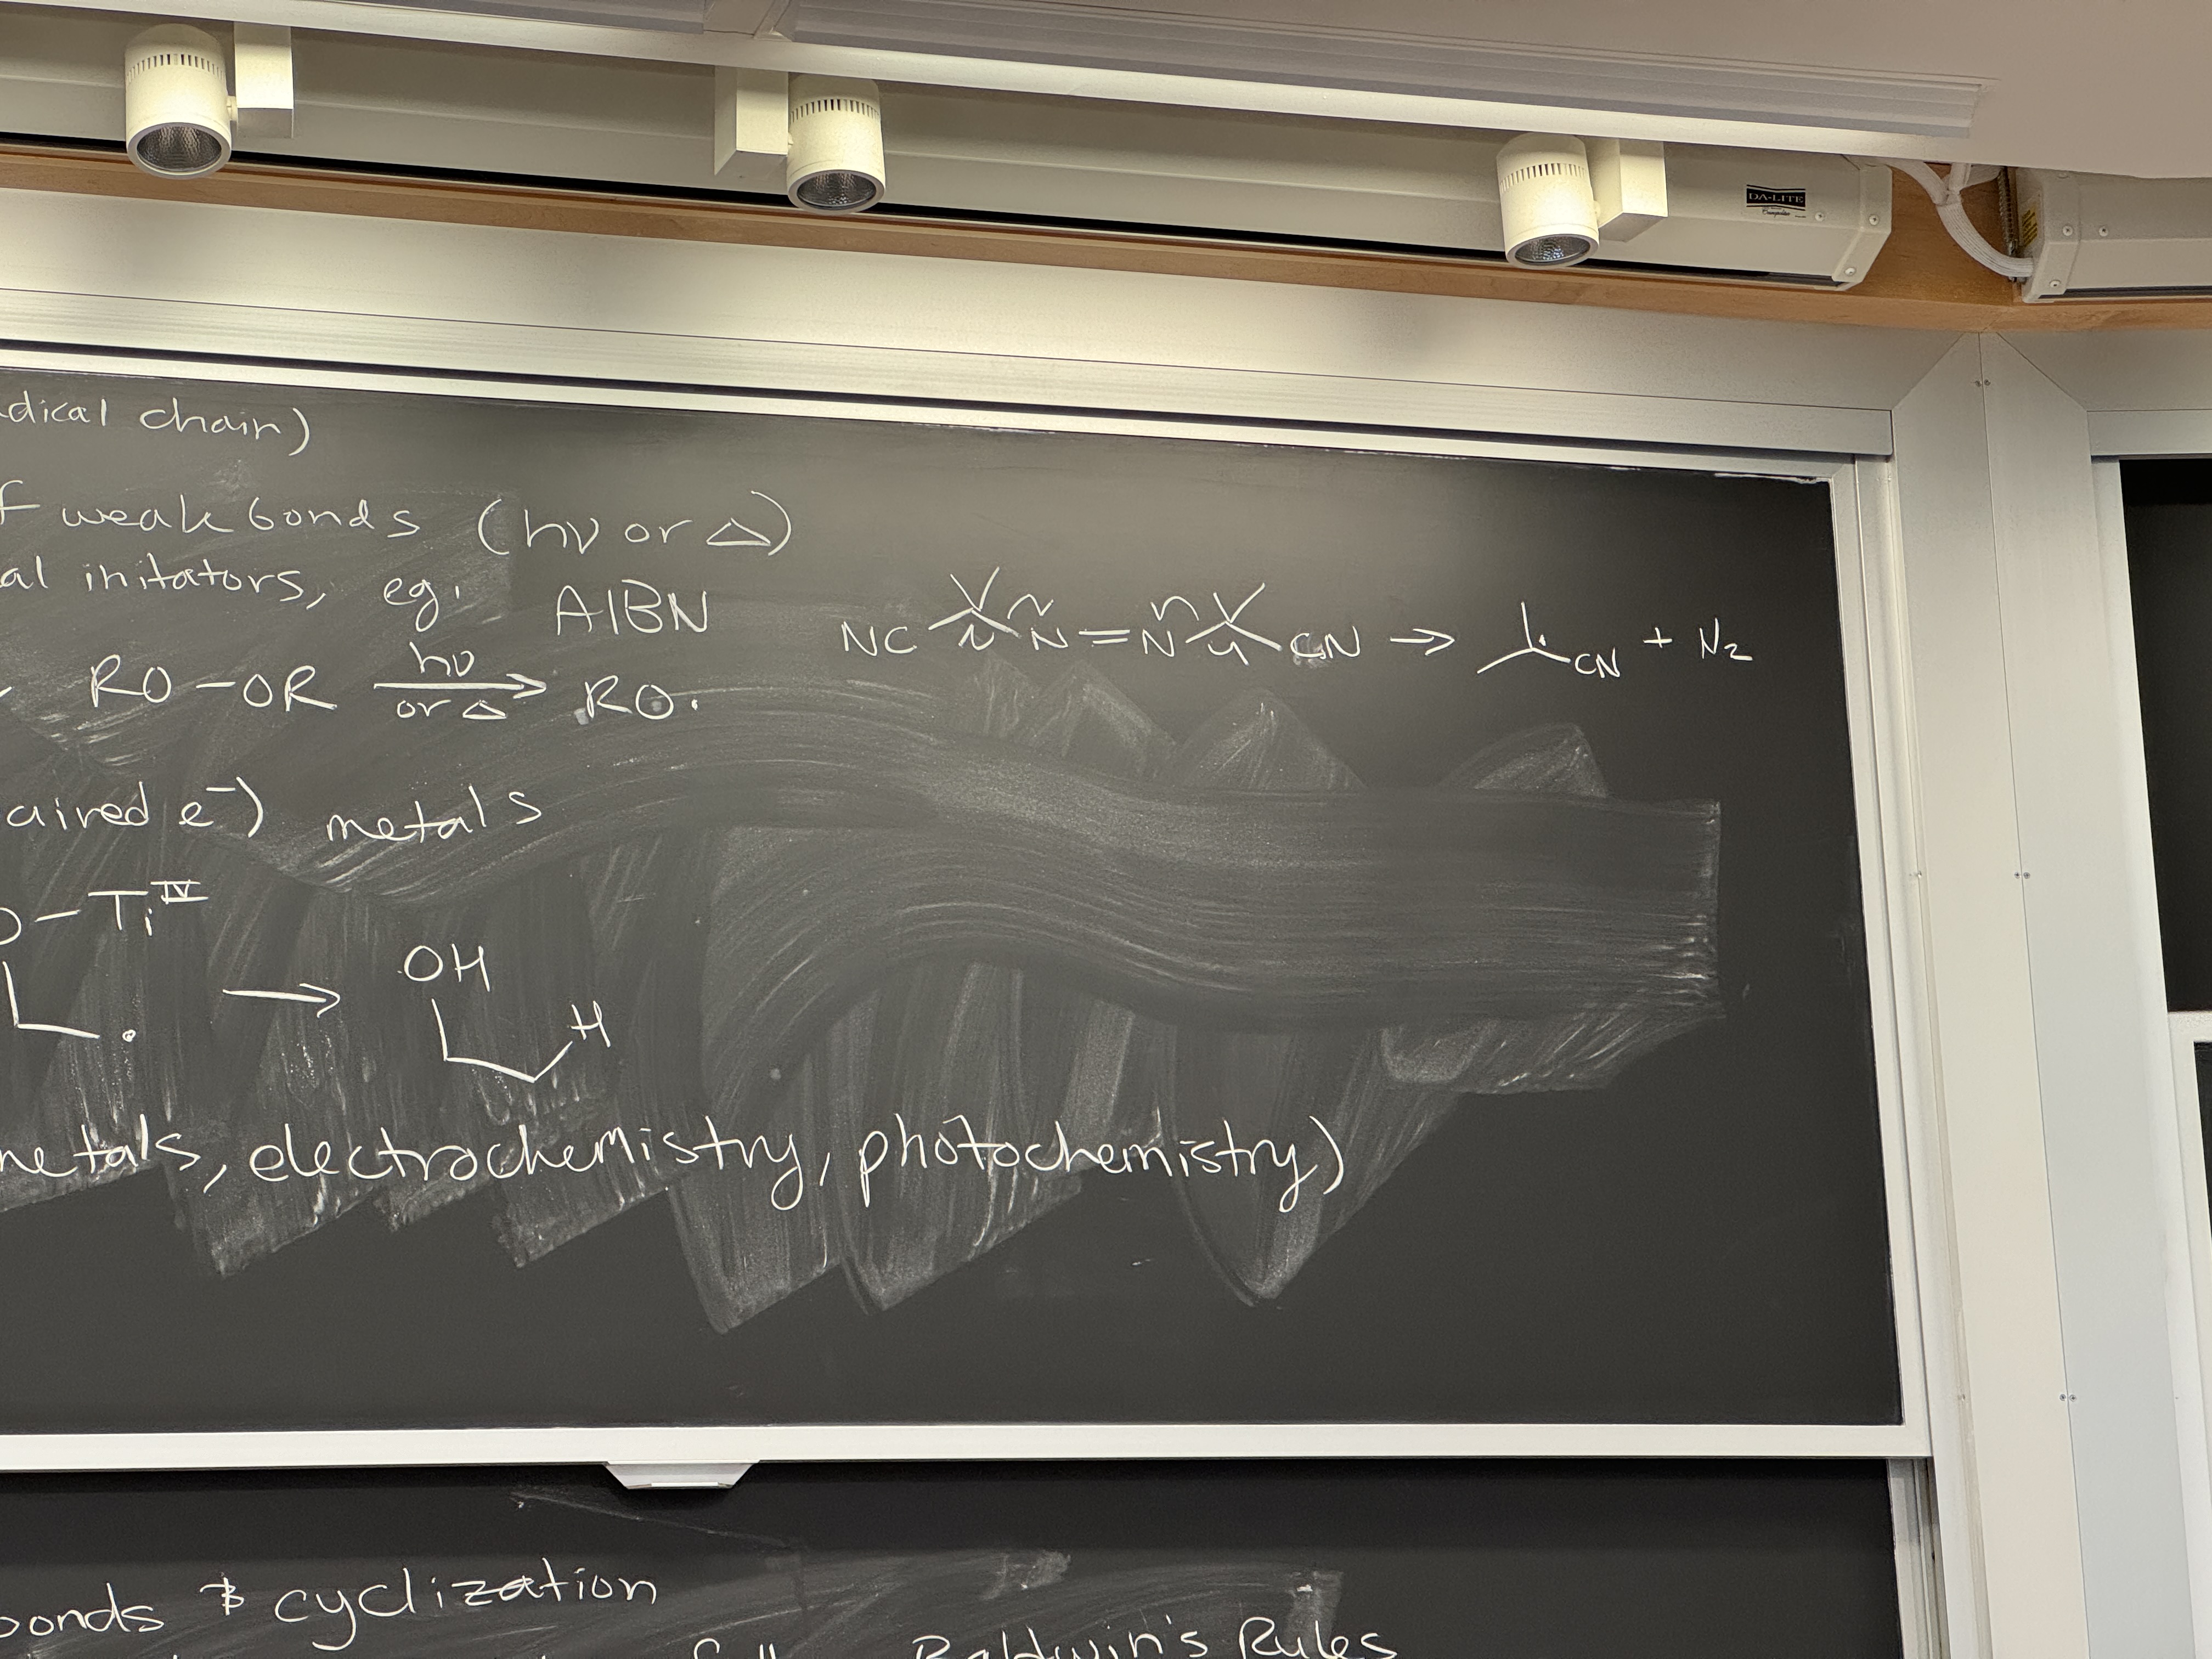 DA-LITE
dical chain)
f weak bonds (hν or △)
al initators, eg. AIBN
NC N=N CN → CN + N₂
RO—OR hν or △ → RO·
aired e⁻) metals
O—Ti^IV
· → OH H
metals, electrochemistry, photochemistry)
bonds & cyclization
Baldwin's Rules